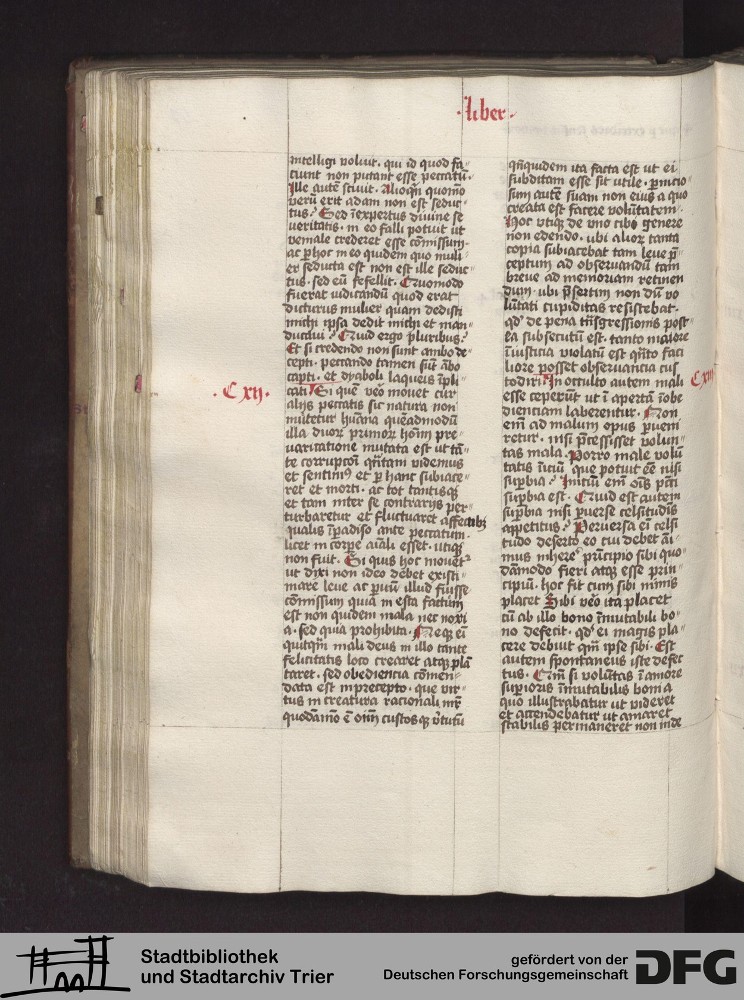 ·liber·
intelligi voluit· qui id quod fa〃
ciunt non putant esse peccatū·
Ille autē sciuit· Alioqͥn quomō
verū erit adam non est seduc〃
tus· Sed īexpertus diuine se
ueritatis· in eo falli potuit ut
veniale crederet esse cōmissum·
ac ꝑ hoc in eo quidem quo muli〃
er seducta est non est ille seduc〃
tus· sed eū fefellit· Quomodo
fuerat iudicandū quod erat
dicturus mulier quam dedisti
michi ipsa dedit michi et man〃
ducaui· Quid ergo pluribus·
Et si credendo non sunt ambo de〃
cepti· peccando tamen sūt ābo
capti· et dyaboli laqueis īpli〃
·C xij·
cati Si quē veō mouet cur
alijs peccatis sic natura non
mutetur hūana quēadmodū
illa duoꝝ primoꝝ hoīm pre〃
uaricatione mutata est ut tā〃
te corrupcōi qͣntam videmus
et sentimꝰ et ꝑ hanc subiace〃
ret et morti· ac tot tantisqꝫ
et tam inter se contrarijs per〃
turbaretur et fluctuaret affectibꝫ
qualis īpadiso ante peccatum·
licet in corpe aīali esset· utiqꝫ
non fuit· Si quis hoc mouetͬ
ut dixi non ideo debet existi〃
mare leue ac ꝑuū illud fuisse
cōmissum quia in esca factum
est non quidem mala nec noxi
a· sed quia prohibita· Neqꝫ eī
quitqͣm mali deus in illo tante
felicitatis loco crearet atqꝫ plā
taret· sed obediencia cōmen〃
data est in precepto· que vir〃
tus in creatura racionali mr̄
quodāmō ē oīm custosqꝫ v̓tutū
qn̄quidem ita facta est ut ei
subditam esse sit utile· ꝑnicio〃
sum autē suam non eius a quo
creata est facere volūtatem·
Hoc utiqꝫ de vno cibi genere
non edendo· ubi alioꝝ tanta
copia subiacebat tam leue p̄〃
ceptum ad obseruandū tam
breue ad memoriam retinen
dum· ubi p̄sertim non dū vo
lūtati cupiditas resistebat·
qd̓ de pena tn̄sgressionis post〃
ea subsecutū est· tanto maiore
īiusticia violatū est qͣnto faci
liore posset obseruancia cus
C xiij
todiri In occulto autem mali
esse ceperūt ut ī apertā īobe
dienciam laberentur· Non
em̄ ad malum opus ꝑuem
retur· nisi p̄cessisset volun〃
tas mala· Porro male volū
tatis īiciū que potuit eē nisi
suꝑbia· Iniciū em̄ oīs pcc̄i
suꝑbia est· Quid est autem
suꝑbia nisi ꝑuerse celsitudīs
appetitus· Peruersa eī celsi
tudo deserto eo cui debet ai
mus inhere̓ prīcipio sibi quo〃
dāmodo fieri atqꝫ esse prin〃
cipiū· hoc fit cum sibi nimis
placet Sibi veō ita placet
cū ab illo bono īmutabili bo〃
no deficit· qd̓ ei magis pla〃
cere debuit qͣm ipse sibi· Est
autem spontaneus iste defec
tus· Qm̄ si volūtas ī amore
suꝑioris īmutabilis boni a
quo illustrabatur ut videret
et accendebatur ut amaret
stabilis permaneret non inde
Stadtbibliothek
und Stadtarchiv Trier
gefördert von der
Deutschen Forschungsgemeinschaft
DFG